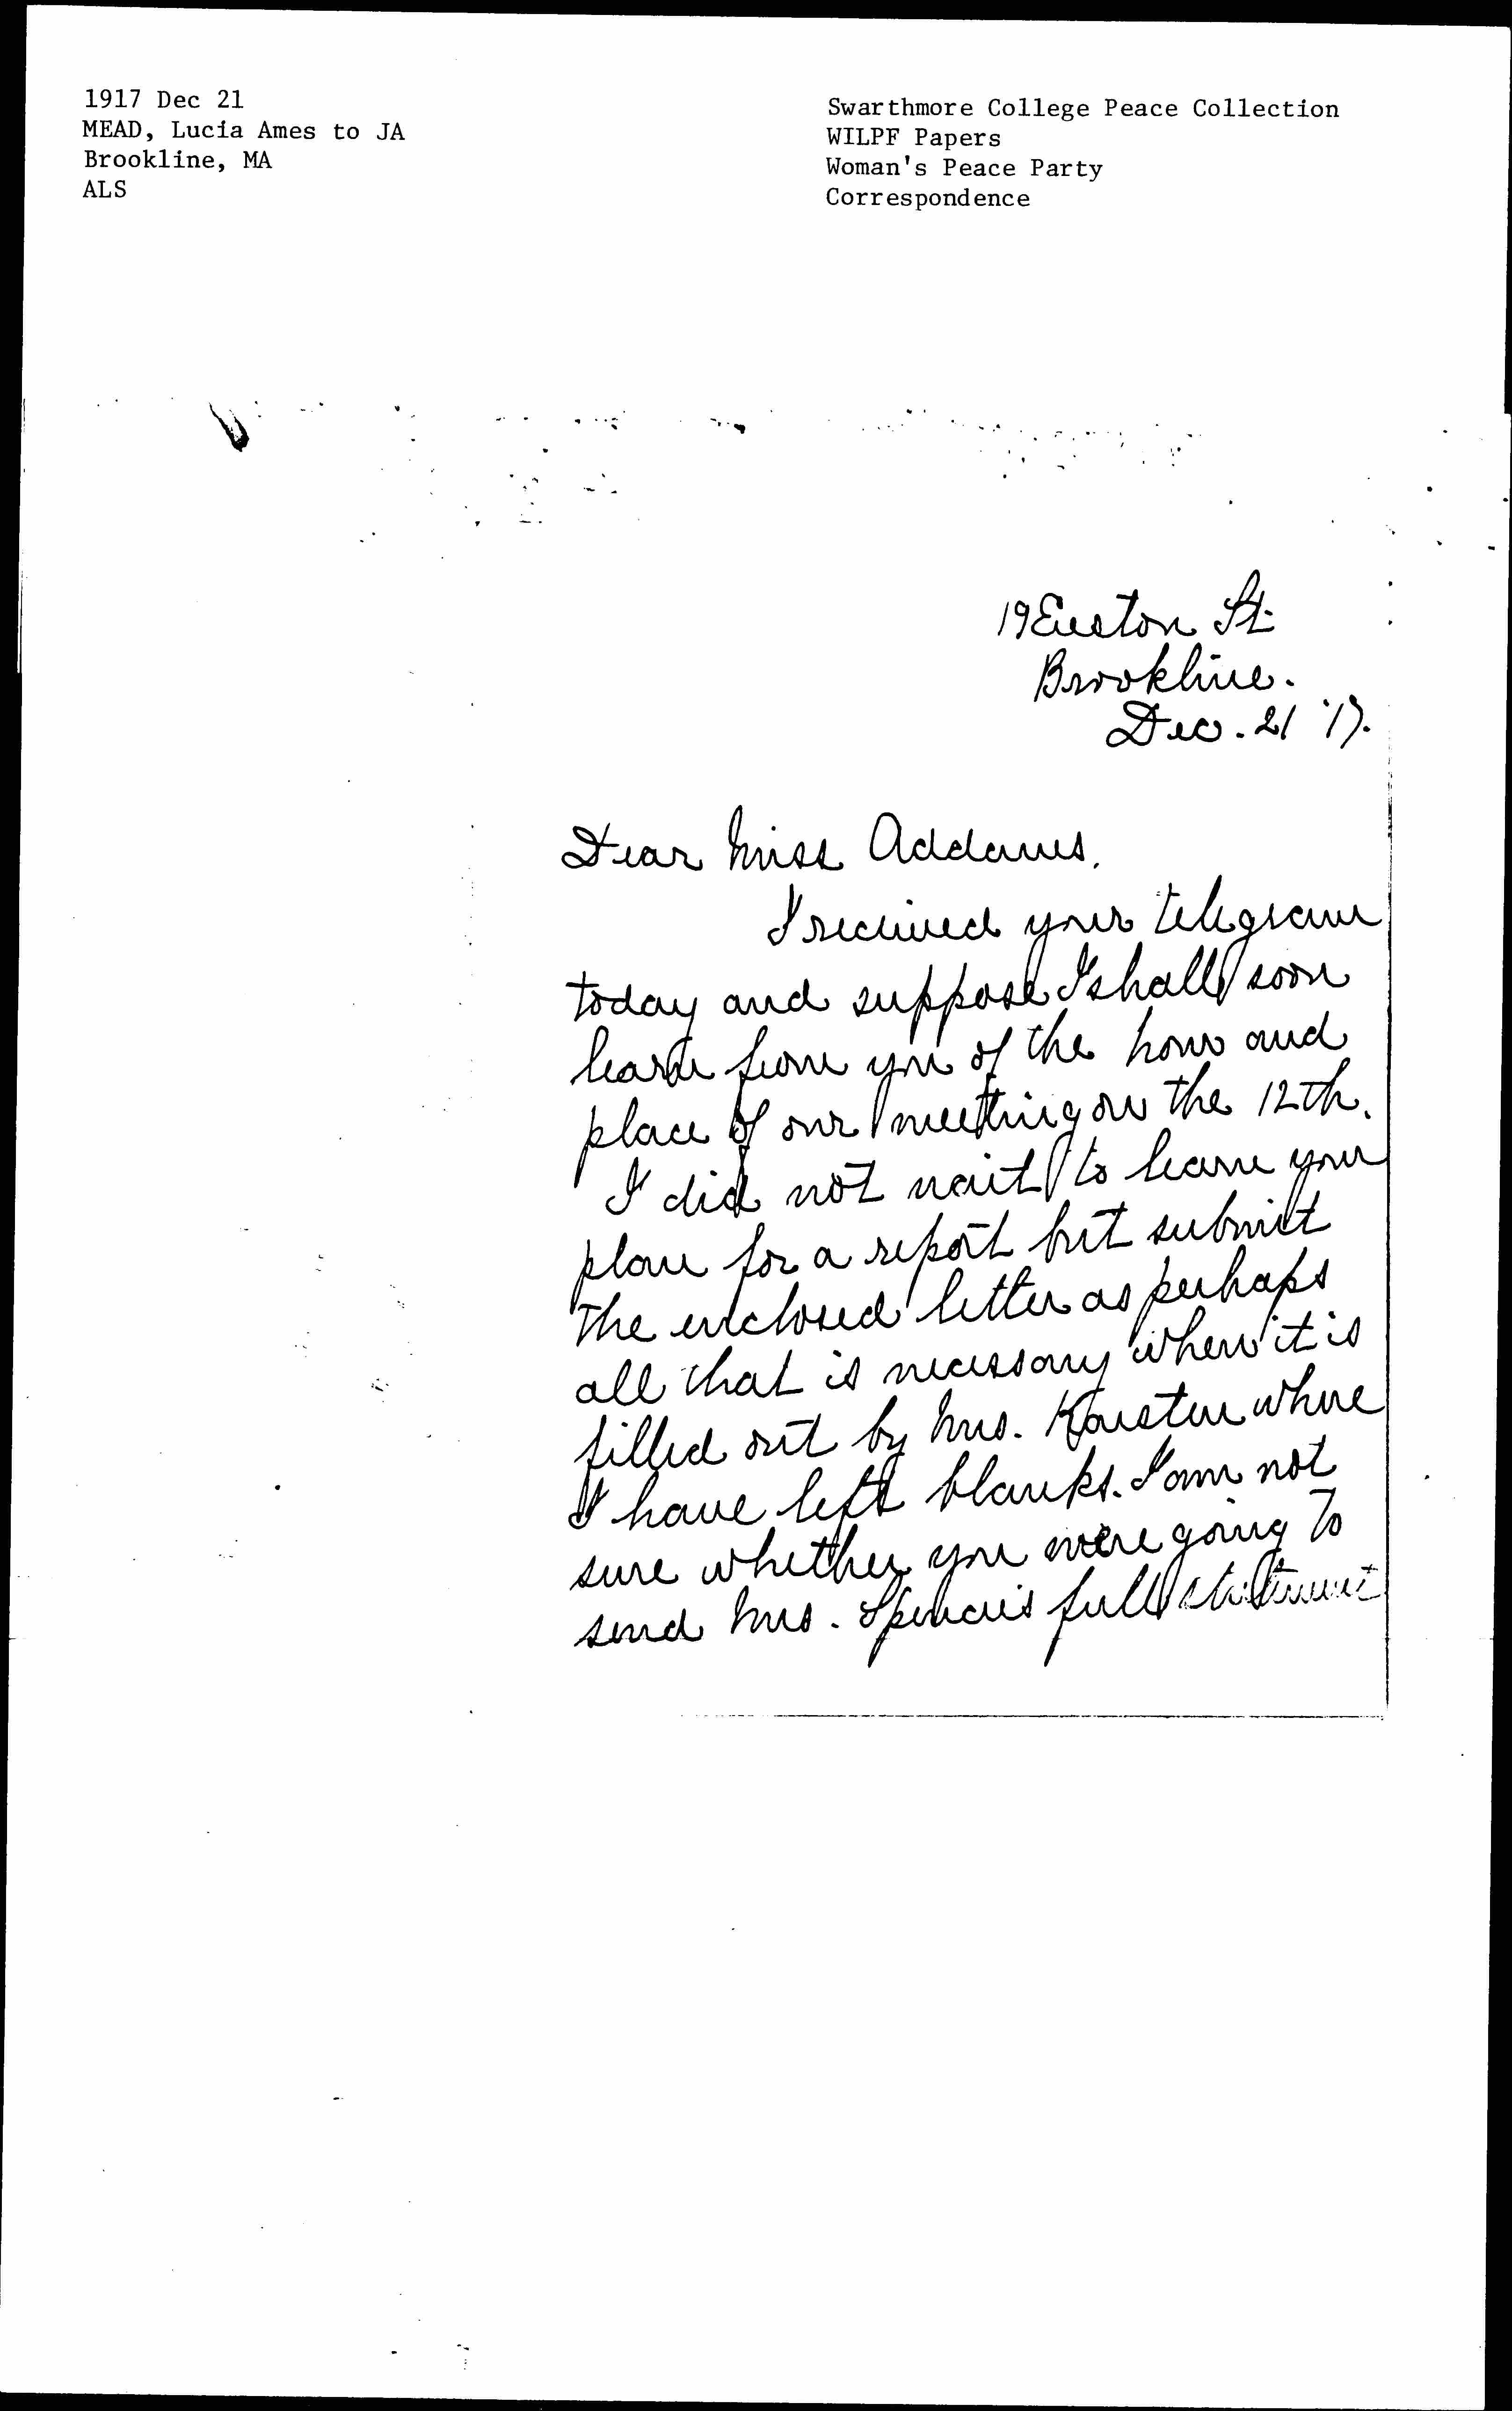 1917 Dec 21
MEAD, Lucia Ames to JA
Brookline, MA
ALS
Swarthmore College Peace Collection
WILPF Papers
Woman's Peace Party
Correspondence
19 Euston St.
Brookline.
Dec. 21 '17.
Dear Miss Addams,
I received your telegram
today and suppose I shall soon
learn from you of the hour and
place of our meeting on the 12th.
I did not wait to learn your
plan for a report but submit
the enclosed letter as perhaps
all that is necessary when it is
filled out by Mrs. Karsten where
I have left blanks. I am not
sure whether you were going to
send Mrs. Spencer's full statement